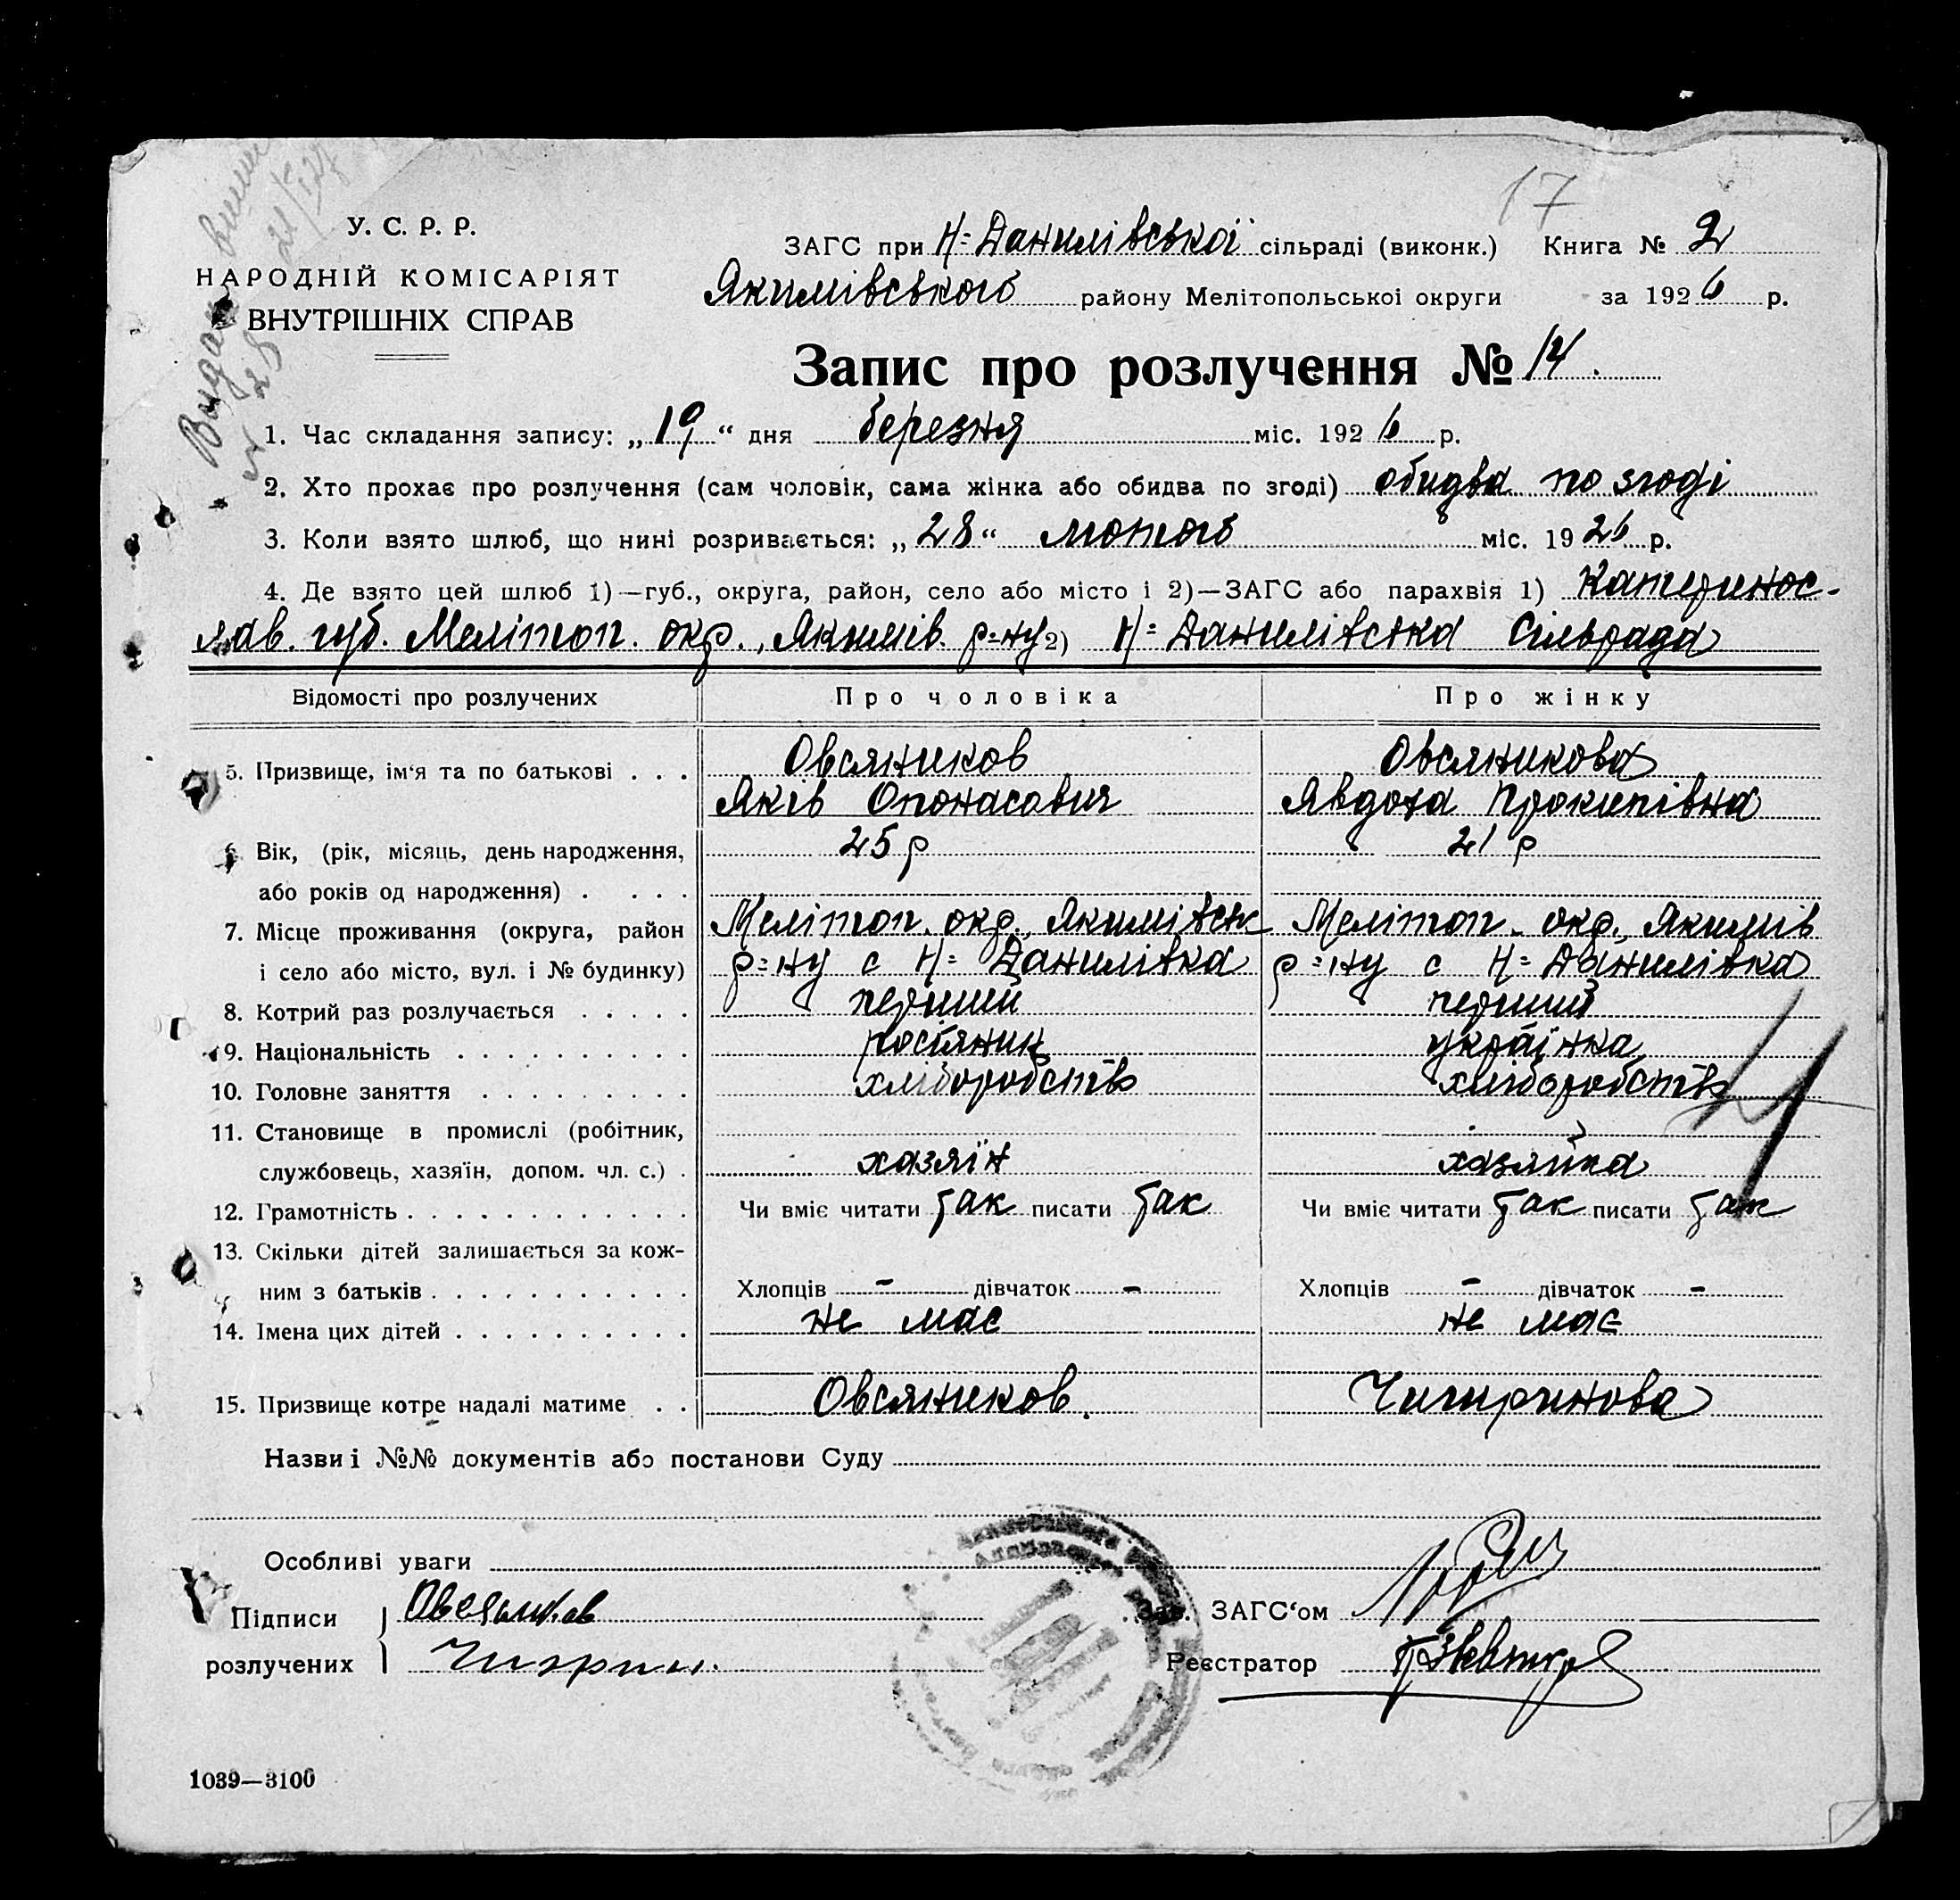 17
У. С. Р. Р.
НАРОДНІЙ КОМІСАРІЯТ
ВНУТРІШНІХ СПРАВ
ЗАГС при Н=Данилівської сільраді (виконк.) Книга № 2
Якимівського району Мелітопольської округи за 1926 р.
Запис про розлучення № 14.
1. Час складання запису: „19“ дня березня міс. 1926 р.
2. Хто прохає про розлучення (сам чоловік, сама жінка або обидва по згоді) обидва по згоді
3. Коли взято шлюб, що нині розривається: „28“ лютого міс. 1926 р.
4. Де взято цей шлюб 1)—губ., округа, район, село або місто і 2)—ЗАГС або парахвія 1) Катеринос-
лав. губ. Мелітоп. окр., Якимів. р=ну 2) Н=Данилівська Сільрада
Відомості про розлучених Про чоловіка Про жінку
5. Призвище, ім‘я та по батькові . . . Овсяников Овсяникова
Яків Опонасович Явдоха Прокипівна
6. Вік, (рік, місяць, день народження, 25 р 21 р
або років од народження) . . . .
7. Місце проживання (округа, район Мелітоп. окр., Якимівськ Мелітоп. окр., Якимів
і село або місто, вул. і № будинку) р=ну с Н=Данилівка р=ну с Н=Данилівка
8. Котрий раз розлучається . . . . . перший перший
9. Національність . . . . . . . . . . росіянин українка
10. Головне заняття . . . . . . . . . хліборобств хліборобств
11. Становище в промислі (робітник,
службовець, хазяїн, допом. чл. с.) . хазяїн хазяйка
12. Грамотність . . . . . . . . . . . . Чи вміє читати так писати так Чи вміє читати так писати так
13. Скільки дітей залишається за кож-
ним з батьків . . . . . . . . . . . Хлопців - дівчаток - Хлопців - дівчаток -
14. Імена цих дітей . . . . . . . . . . не має не має
15. Призвище котре надалі матиме . . Овсяников. Чигиринова
Назви і №№ документів або постанови Суду
Особливі уваги
Підписи Овсяников Зав. ЗАГС‘ом
розлучених Реєстратор
1039—3100